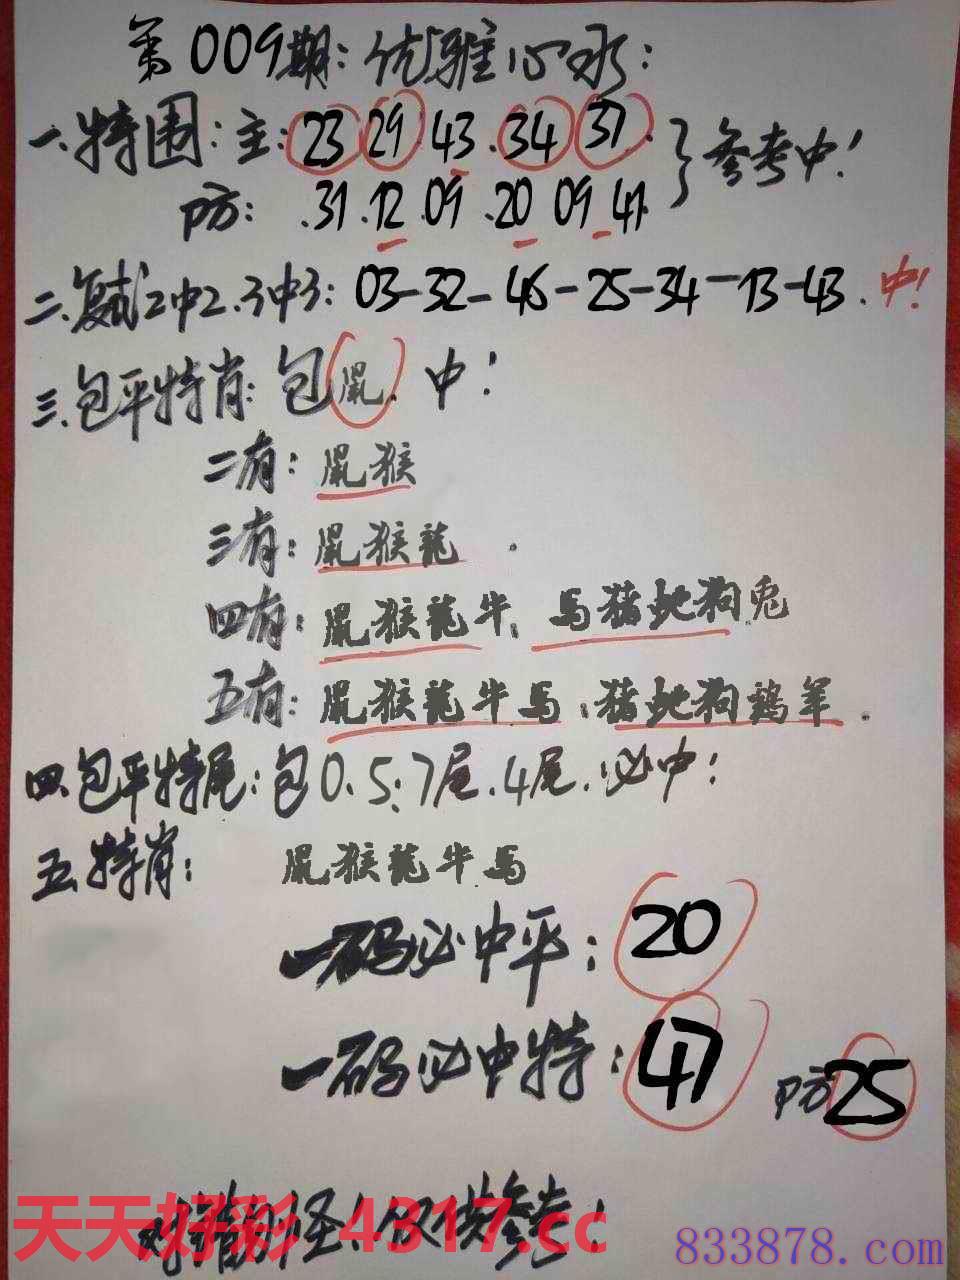 第009期：优雅心水：
一.特围：主：23 29 43.34 37.
防：.31.12.09.20 09 41.
参考中！
二.复试2中2.3中3：03-32-46-25-34-13-43.中！
三.包平特肖：包鼠.中！
二有：鼠猴
三有：鼠猴龍.
四有：鼠猴龍牛.馬豬蛇狗兔
五有：鼠猴龍牛馬.豬蛇狗鷄羊.
四.包平特尾：包0.5.7尾.4尾.必中！
五.特肖：鼠猴龍牛馬
一码必中平：20
一码必中特：47 防25
对错别怪！仅供参考！
天天好彩 4317.cc
833878.com